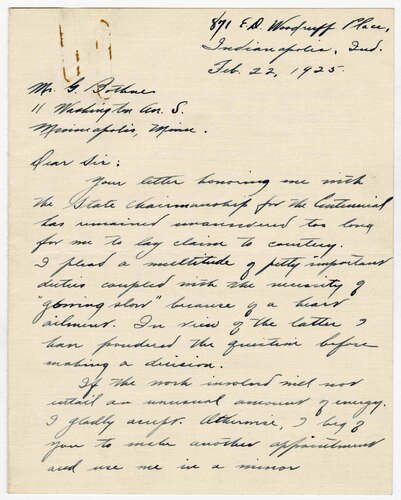 871 E.D. Woodruff Place,
Indianapolis, Ind.
Feb. 22, 1925.
Mr. G. Bothne
11 Washington Av. S.
Minneapolis, Minn.
Dear Sir:
Your letter honoring me with
the State Chairmanship for the Centennial
has remained unanswered too long
for me to lay claim to courtesy.
I plead a multitude of petty important
duties coupled with the necessity of
"going slow" because of a heart
ailment. In view of the latter, I
have pondered the question before
making a decision.
If the work involved will not
entail an unusual amount of energy.
I gladly accept. Otherwise, I beg of
you to make another appointment
and use me in a minor